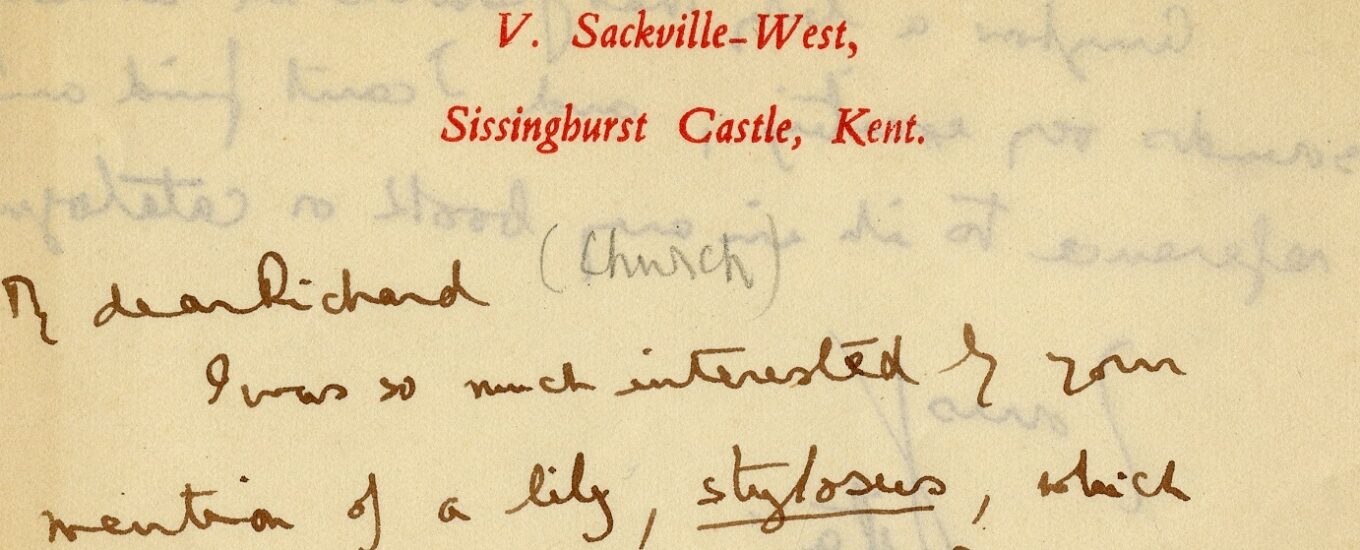 V. Sackville-West,
Sissinghurst Castle, Kent.
(Church)
My dear Richard
I was so much interested by your
mention of a lily, stylosus, which